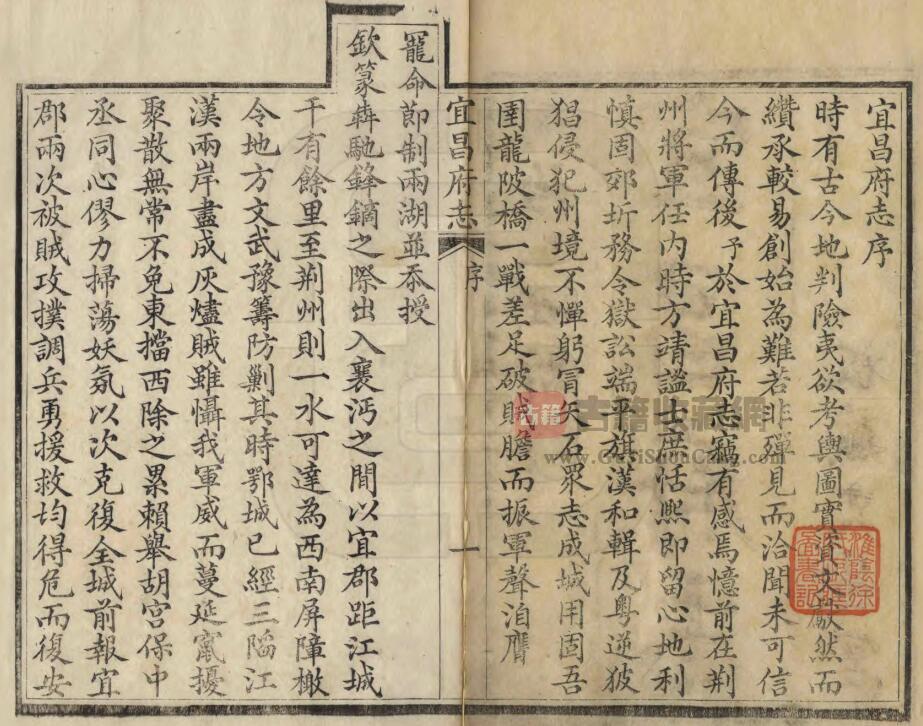 宜昌府志序
時有古今地判險夷欲考輿圖實資文獻然而
纘承較易創始為難若非殫見而洽聞未可信
今而傳後予於宜昌府志竊有感焉憶前在荆
州將軍任內時方靖謐士庶恬熙即留心地利
慎固郊圻務令獄訟端平旗漢和輯及粵逆狓
猖侵犯州境不憚躬冒矢石眾志成城用固吾
圉龍陂橋一戰差足破賊膽而振軍聲洎膺
宜昌府志 序 一
寵命節制兩湖並忝授
欽篆犇馳鋒鏑之際出入襄沔之間以宜郡距江城
千有餘里至荆州則一水可達為西南屏障檄
令地方文武豫籌防剿其時鄂城已經三陷江
漢兩岸盡成灰燼賊雖懾我軍威而蔓延竄擾
聚散無常不免東擋西除之累賴舉胡宮保中
丞同心僇力掃蕩妖氛以次克復全城前報宜
郡兩次被賊攻撲調兵勇援救均得危而復安
古籍收藏網
www.GuJiShouCang.com
古籍